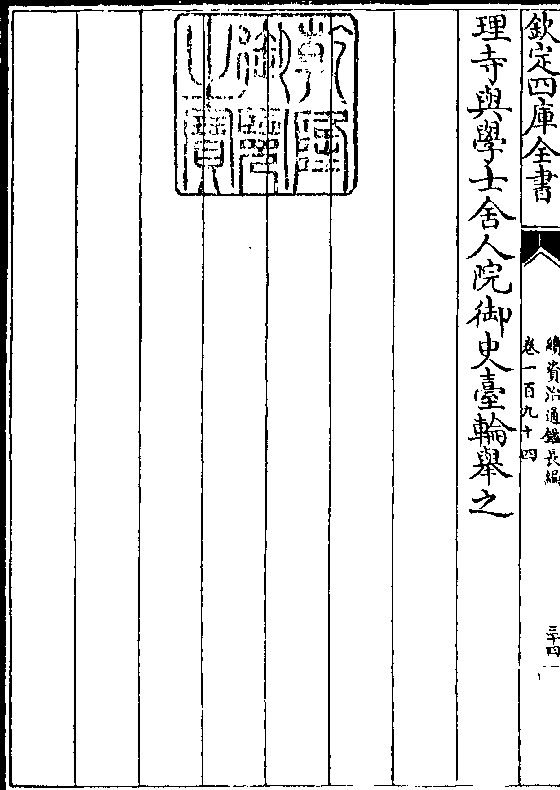 欽定四庫全書
續資治通鑑長編
卷一百九十四
三十四
理寺與學士舍人院御史臺輪舉之
乾隆御覽之寶